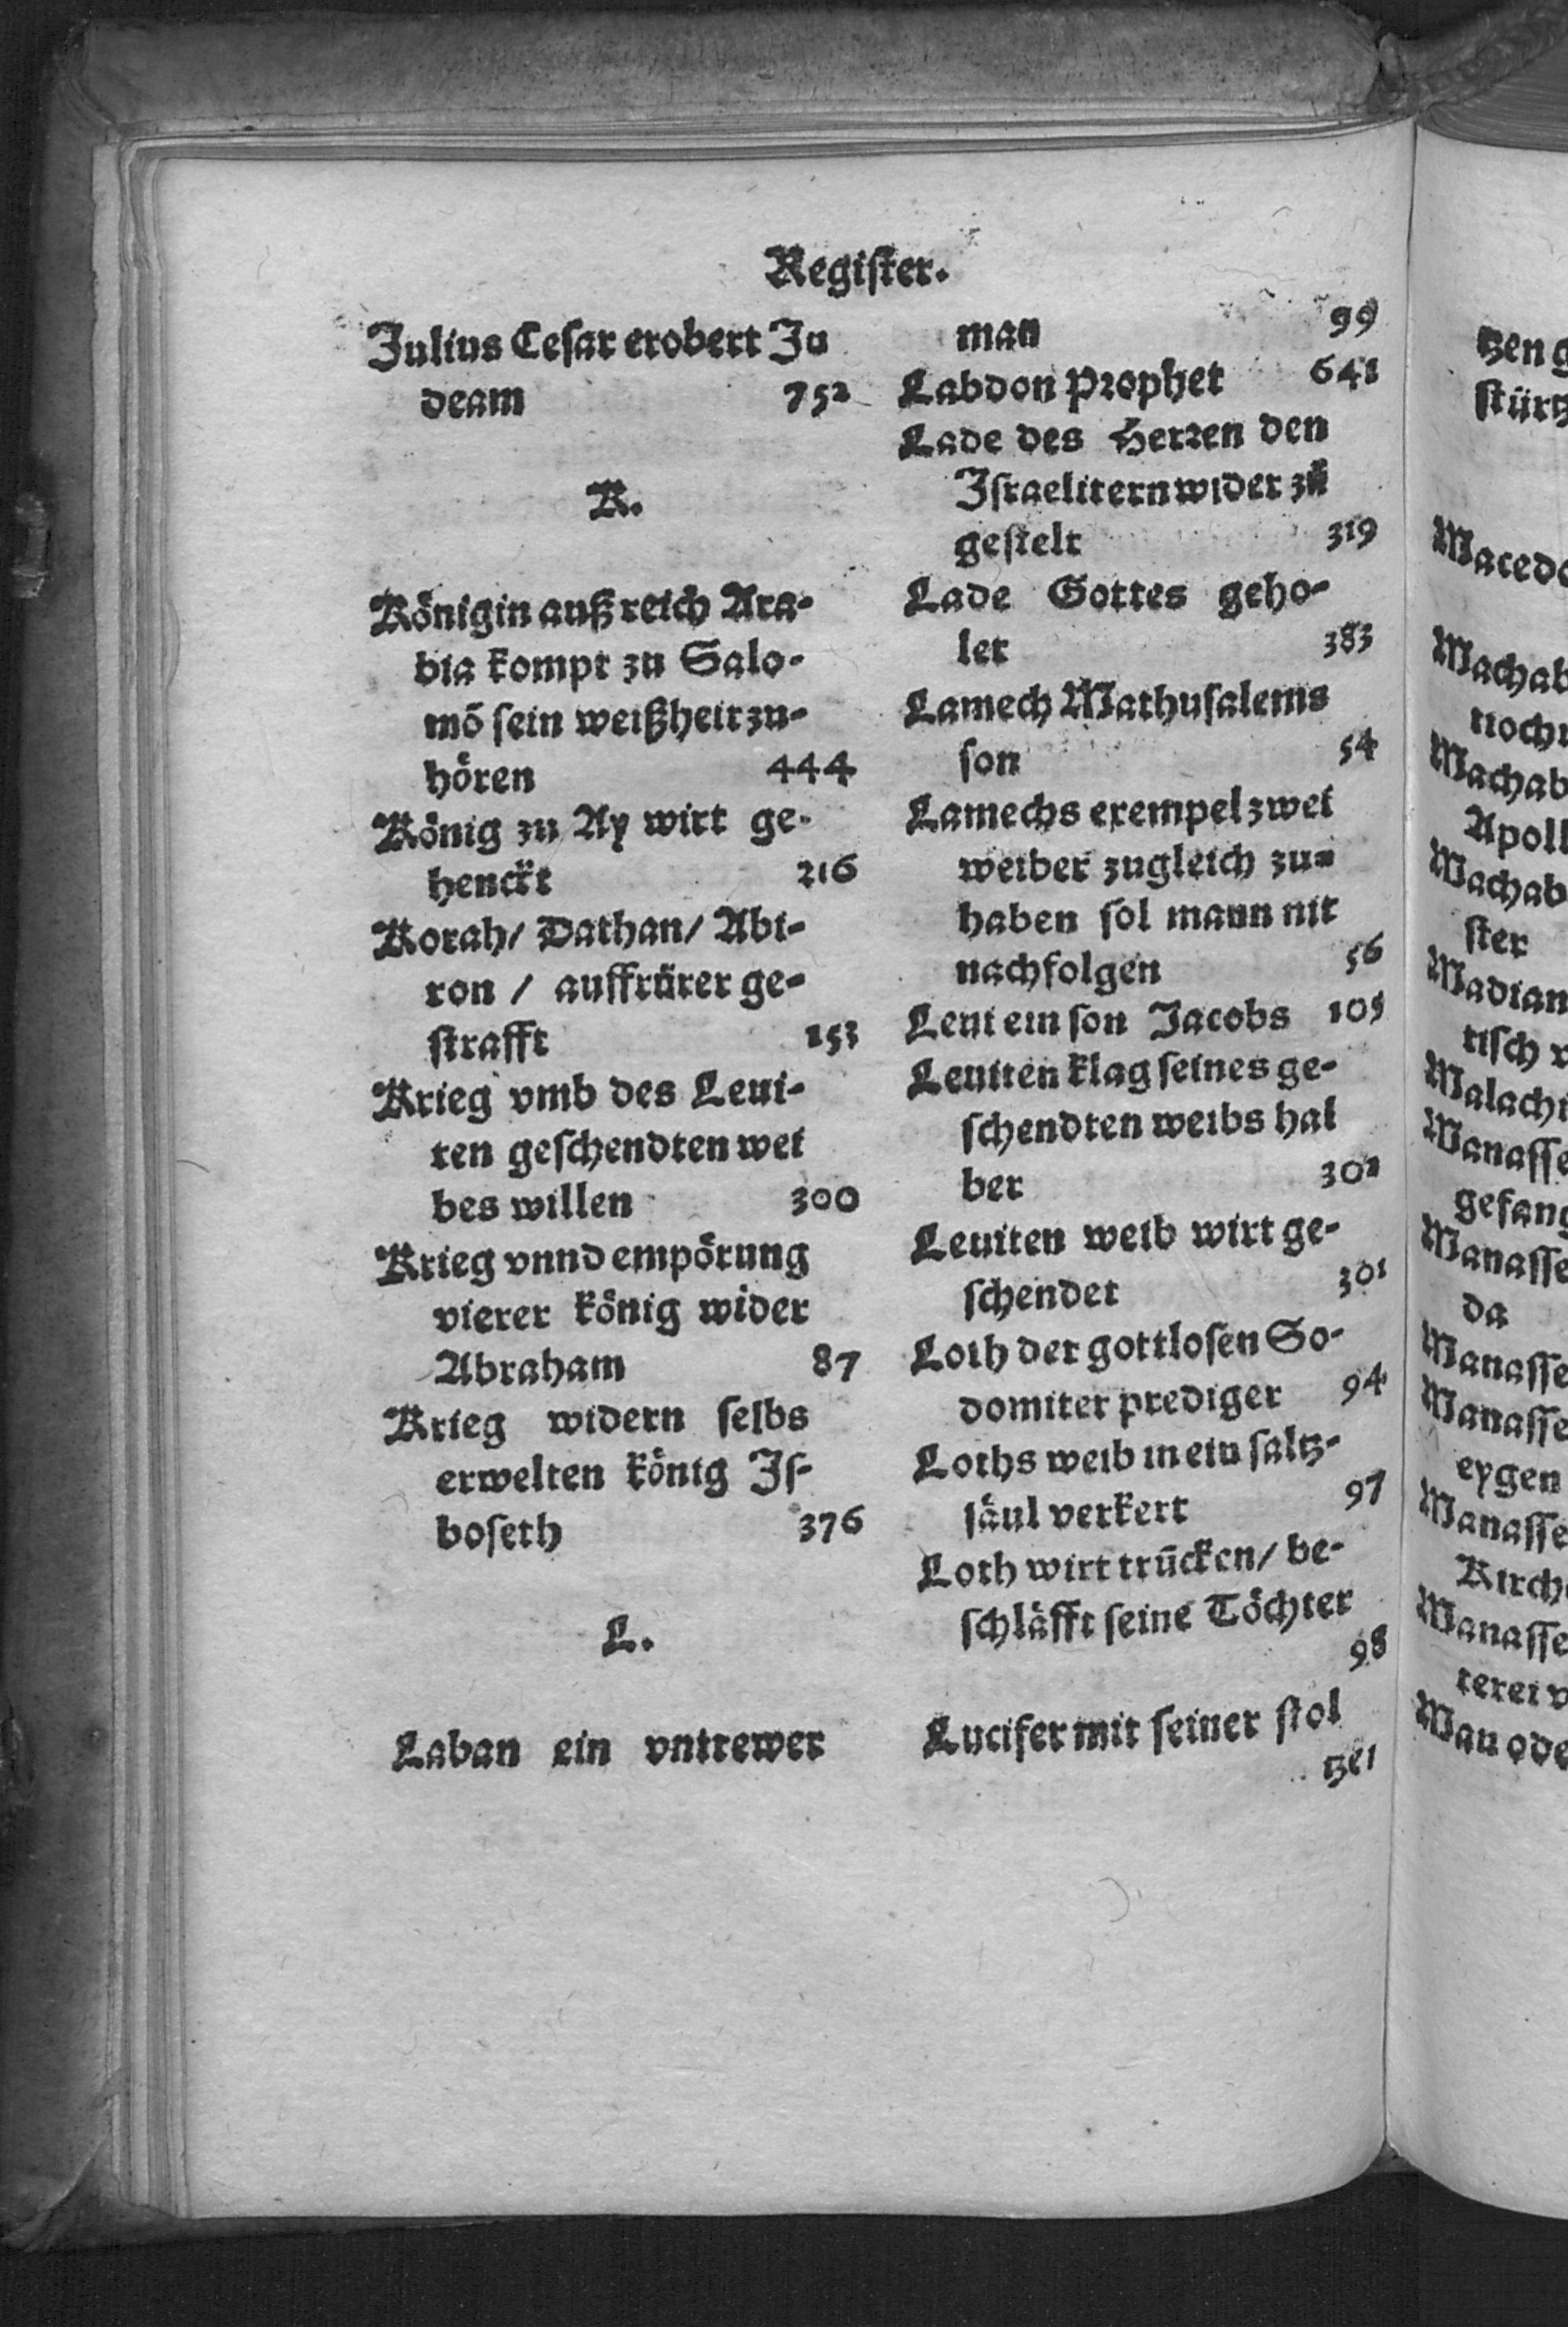 Register.
Julius Ceſar erobert Ju
deam 752
K.
Königin auß reich Ara-
bia kompt zu Salo-
mõ ſein weißheit zu-
hören 444
König zu Ay wirt ge-
henckt 216
Korah/ Dathan/ Abi-
ron / auffrürer ge-
ſtrafft 153
Krieg vmb des Leui-
ten geſchendten wei
bes willen 300
Krieg vnnd empörung
vierer könig wider
Abraham 87
Krieg widern ſelbs
erwelten könig Iſ-
boſeth 376
L.
Laban ein vntrewer
man 99
Labdon Prophet 641
Lade des Herren den
Iſraelitern wider zů
geſtelt 319
Lade Gottes geho-
let 383
Lamech Mathuſalems
ſon 54
Lamechs exempel zwei
weiber zugleich zu-
haben ſol mann nit
nachfolgen 56
Leui ein ſon Jacobs 105
Leuiten klag ſeines ge-
ſchendten weibs hal
ber 302
Leuiten weib wirt ge-
ſchendet 301
Loth der gottloſen So-
domiter prediger 94
Loths weib in ein ſaltz-
ſäul verkert 97
Loth wirt trũcken/ be-
ſchläfft ſeine Töchter
98
Lucifer mit ſeiner ſtol
tzei
tzen g
ſtürtz
Macedo
Machab
noch
Machab
Apoll
Machab
ſter
Madian
tiſch
Malachi
Manaſſe
gefang
Manaſſe
da
Manaſſe
Manaſſe
eygen
Manaſſe
Kirch
Manaſſe
terei v
Man ode